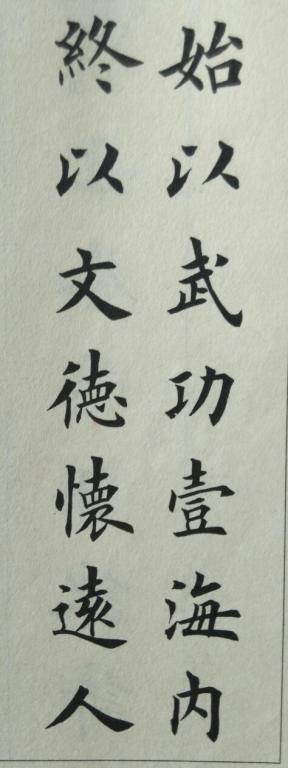 始以武功壹海内
終以文德懷遠人